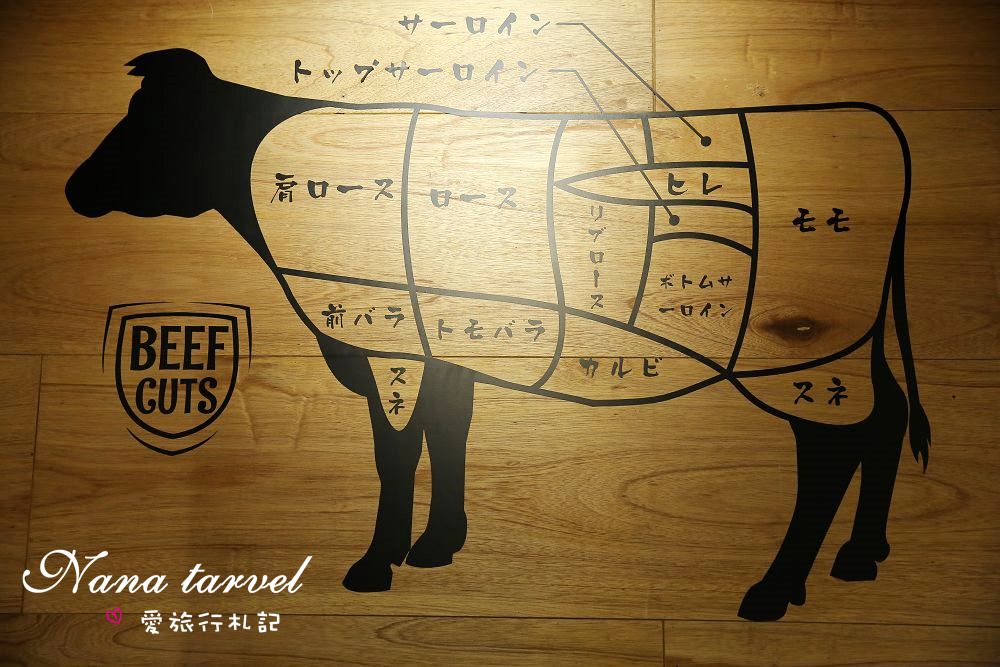 サーロイン
トップサーロイン
肩ロース
ロース
リブロース
ヒレ
モモ
ボトムサ
ーロイン
前バラ
トモバラ
カルビ
スネ
スネ
BEEF
CUTS
Nana tarvel
愛旅行札記